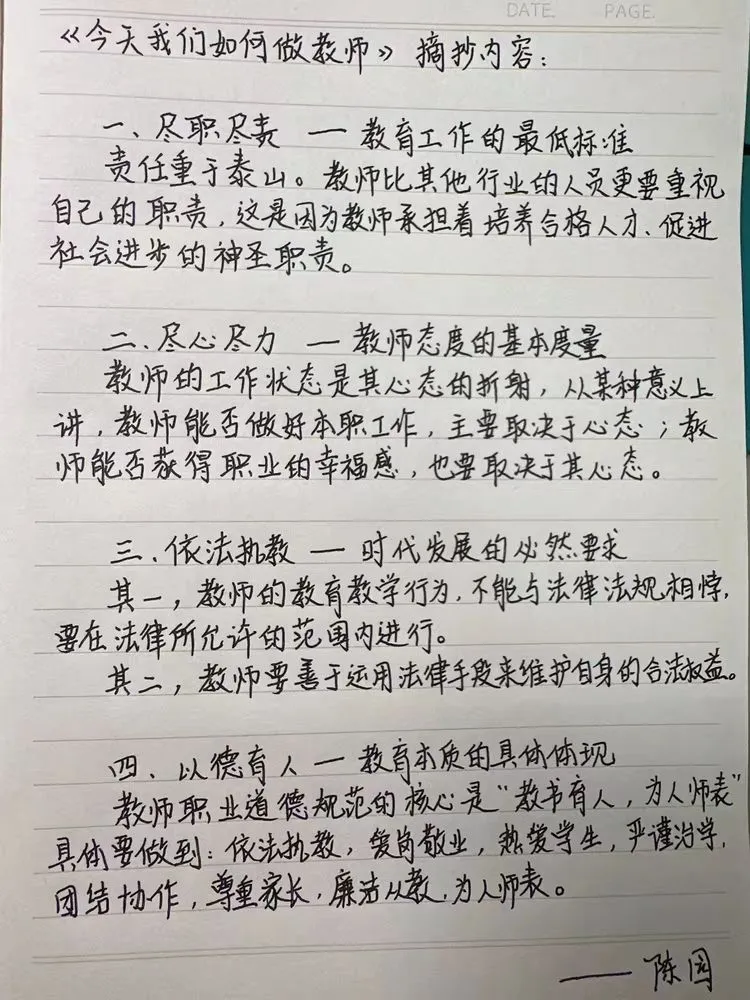 DATE. PAGE.
《今天我们如何做教师》摘抄内容:
一、尽职尽责 — 教育工作的最低标准
责任重于泰山。教师比其他行业的人员更要重视
自己的职责,这是因为教师承担着培养合格人才、促进
社会进步的神圣职责。
二、尽心尽力 — 教师态度的基本度量
教师的工作状态是其心态的折射,从某种意义上
讲,教师能否做好本职工作,主要取决于心态;教
师能否获得职业的幸福感,也要取决于其心态。
三、依法执教 — 时代发展的必然要求
其一,教师的教育教学行为,不能与法律法规相悖,
要在法律所允许的范围内进行。
其二,教师要善于运用法律手段来维护自身的合法权益。
四、以德育人 — 教育本质的具体体现
教师职业道德规范的核心是"教书育人,为人师表"
具体要做到:依法执教,爱岗敬业,热爱学生,严谨治学,
团结协作,尊重家长,廉洁从教,为人师表。
—— 陈园